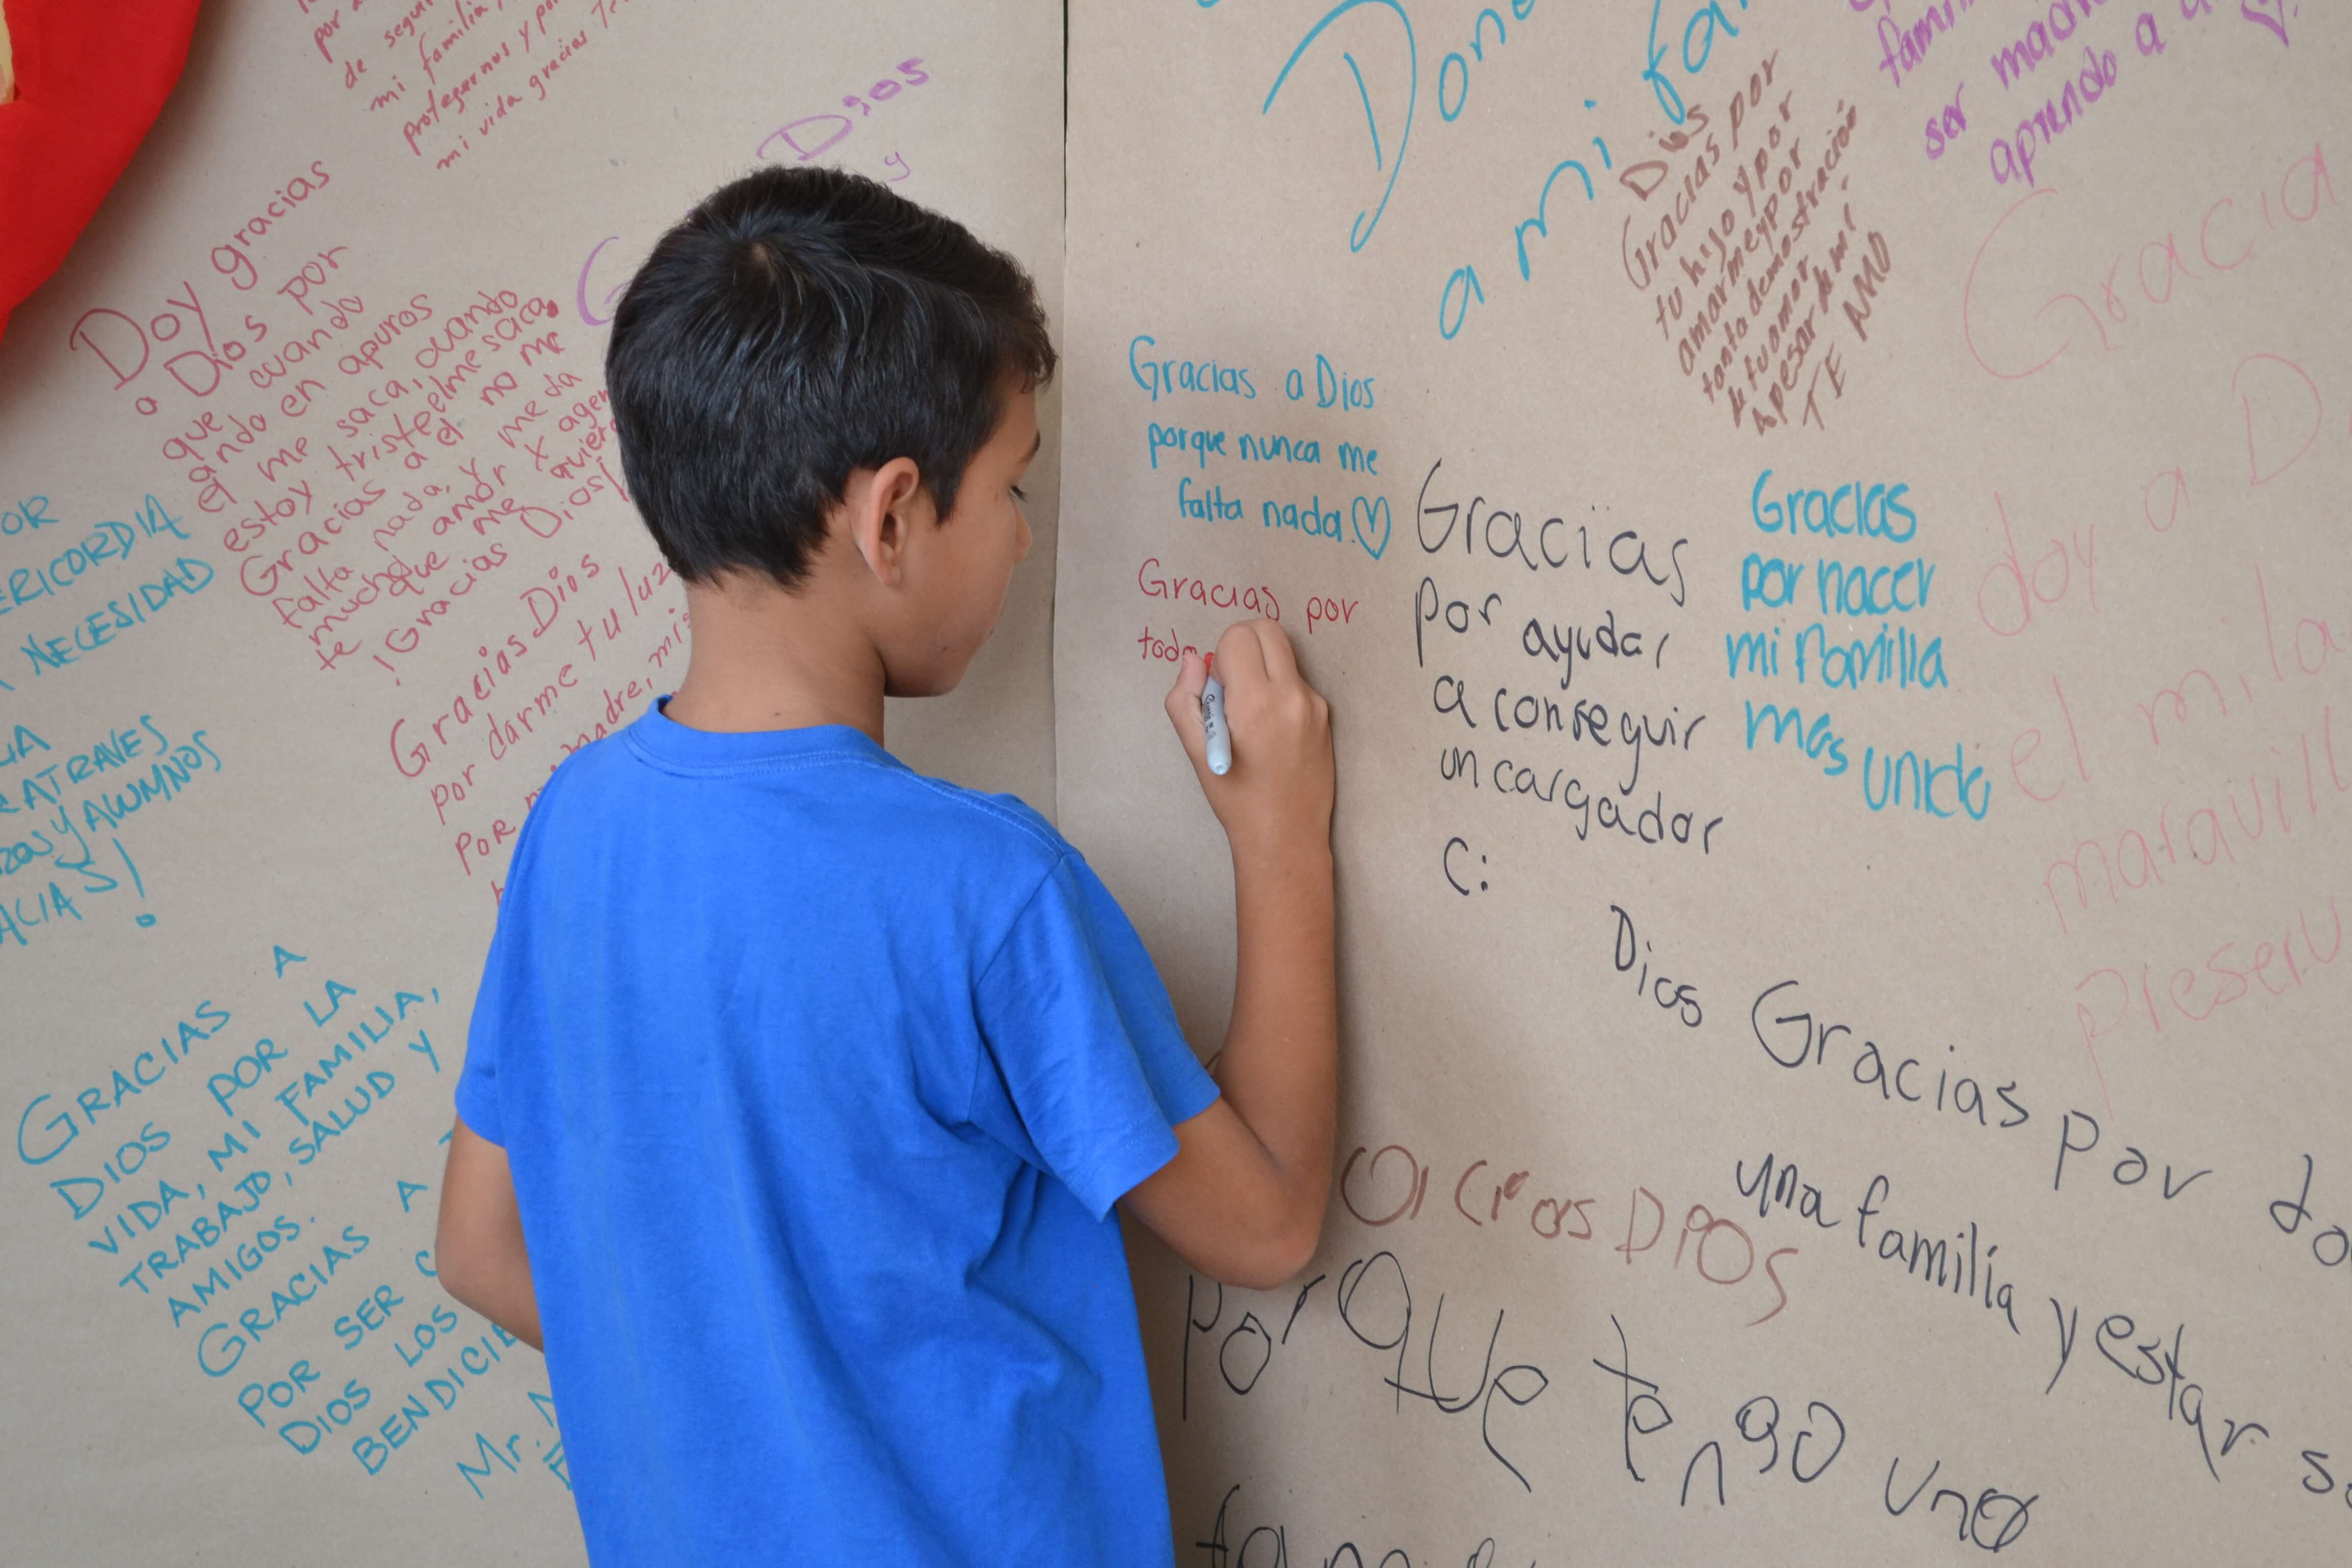 de segui
mi familia
protegernos y por
mi vida gracias
Doy gracias
a Dios por
que cuando
ando en apuros
el me saca, cuando
estoy triste el me saca.
Gracias a el no me
falta nada, y me da
mucho amor x
te que me quier
¡Gracias Dios!
Dios
y
Gracias Dios
por darme tu luz
Por madre, mi
OR
ERICORDIA
NECESIDAD
RATRAVES
Y ALUMNOS
ACIAS!
GRACIAS A
DIOS POR LA
VIDA, MI FAMILIA,
TRABAJO, SALUD Y
AMIGOS.
GRACIAS A
POR SER
DIOS LOS
BENDICIE
Mr.
Dono
a mi fa
Dios
Gracias por
tu hijo y por
amarme y por
tanta demostración
de tu amor
Apesar de mi
TE AMO
fami
ser mad
aprendo a
Gracias a Dios
porque nunca me
falta nada. ♡
Gracias por
todo
Gracias
por ayudar
a conseguir
un cargador
C:
Gracias
por nacer
mi familia
mas unida
Gracia
doy a D
el mila
maravill
preserv
Dios Gracias por do
una familia y estar s
Gi cras DiOS
porque tengo una
fami